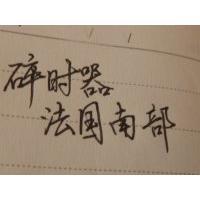 碎时器
法国南部